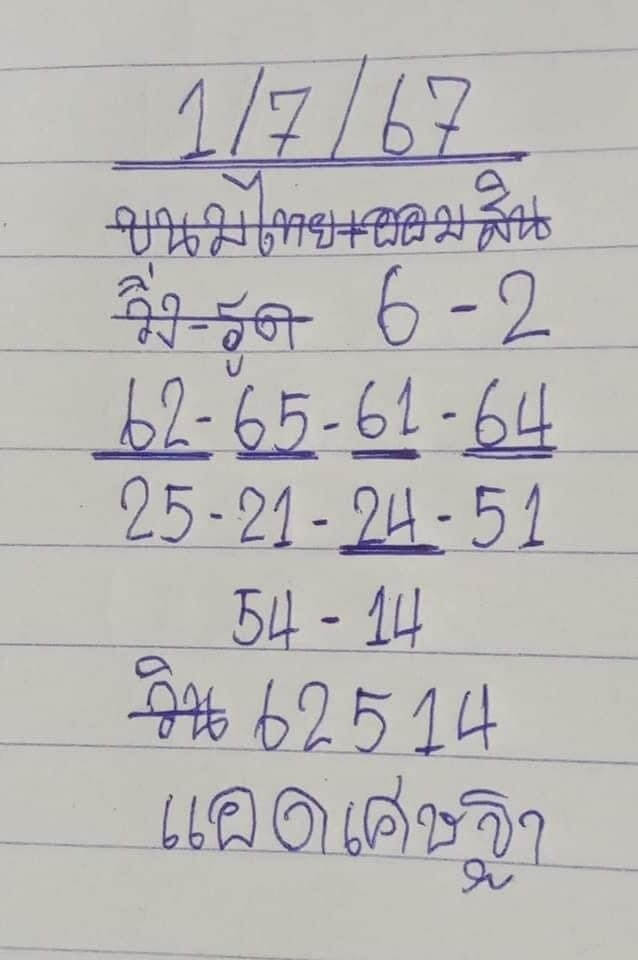 1/7/67
ขนมไทย+ออมสิน
วิ่ง-รูด 6-2
62-65-61-64
25-21-24-51
54-14
วิน 62514
แอดเศษฐิา